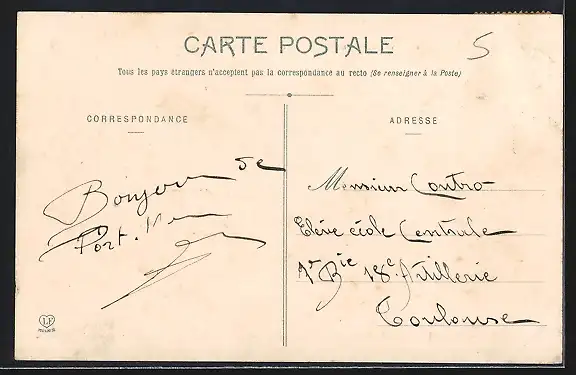 5
CARTE POSTALE
Tous les pays étrangers n'acceptent pas la correspondance au recto (Se renseigner à la Poste)
CORRESPONDANCE
ADRESSE
Bonjour de
Port-
Monsieur Contro
Elève école Centrale
1re Bie 18e Artillerie
Toulouse